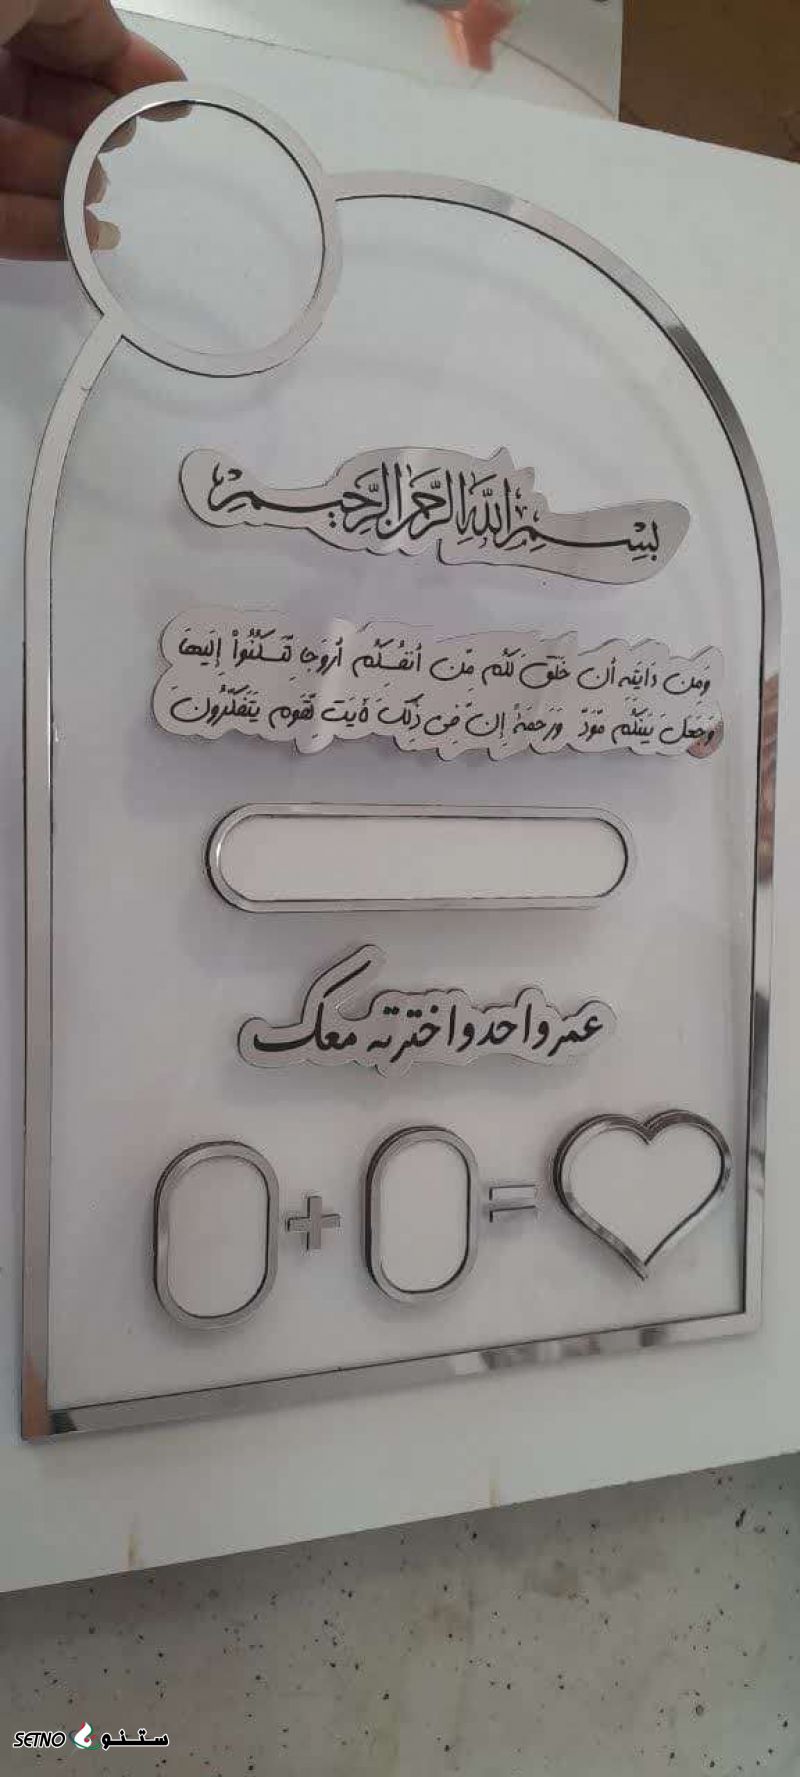 بِسْمِ اللَّهِ الرَّحْمَنِ الرَّحِيمِ
وَمِنْ ءَايَتِهِ أَن خَلَقَ لَكُم مِّنْ أَنفُسِكُم أَزْوَجا لِّتَسْكُنُواْ إِلَيهَا
وَجَعَلَ بَيْنَكُم مَّوَدَّ وَرَحمَةً إِنَّ فِي ذَلِكَ لَأيَتٍ لِّقَوم يَتَفَكَّرُونَ
عمر واحد واخترته معك
+ =
SETNO ستنو